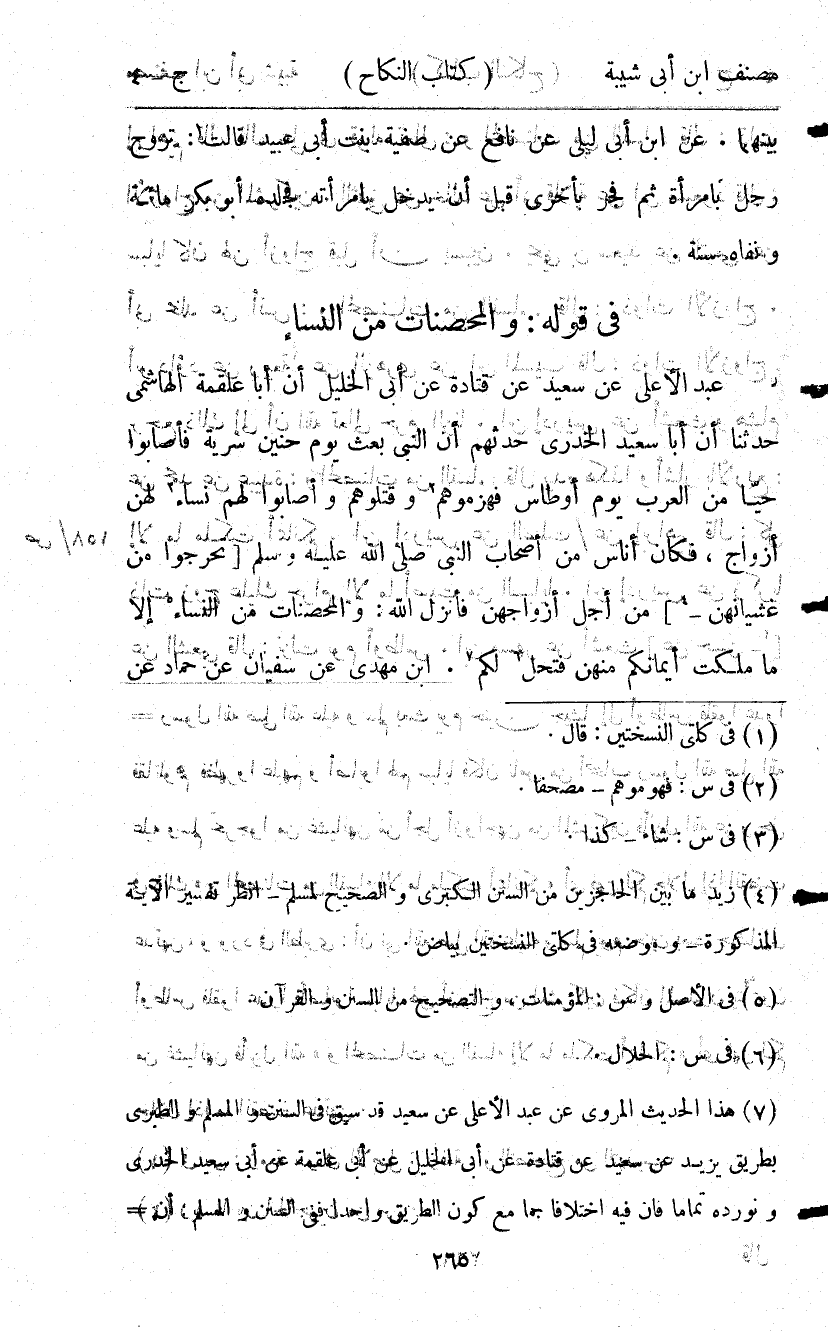 مصنف ابن أبى شيبة ( كتاب النكاح ) ج - ٤
بيتها . عن ابن أبى ليلى عن نافع عن صفية بنت أبى عبيد قالت¹: تزوج
رجل بامرأة ثم فجر بأخرى قبل أن يدخل بامرأته فجلده أبو بكر مائة
و نفاه سنة .
فى قوله : و المحصنات من النساء
عبد الأعلى عن سعيد عن قتادة عن أبى الخليل أن أبا علقمة الهاشمى
حدثنا أن أبا سعيد الخدرى حدثهم أن النبى بعث يوم حنين سرية فأصابوا
حيّا من العرب يوم أوطاس فهزموهم² و قتلوهم و أصابوا لهم نساء³ لهن
أزواج ، فكان أناس من أصحاب النبى صلى الله عليه و سلم [ تحرجوا من
غشيانهن -⁴ ] من أجل أزواجهن فأنزل الله : و المحصنات⁵ من النساء إلا
ما ملكت أيمانكم منهن فتحل⁶ لكم⁷ . ابن مهدى عن سفيان عن حماد عن
(١) فى كلتى النسختين : قال .
(٢) فى س : فهوموهم - مصحفا .
(٣) فى س : شاء - كذا .
(٤) زيد ما بين الحاجزين من السنن الكبرى و الصحيح لمسلم - انظر تفسير الآية
المذكورة - و بوضعه فى كلتى النسختين بياض .
(٥) فى الأصل و س : المؤمنات ، و التصحيح من السنن و القرآن .
(٦) فى س : الحلال .
(٧) هذا الحديث المروى عن عبد الأعلى عن سعيد قد سيق فى السنن و المسلم و الطبرى
بطريق يزيد عن سعيد عن قتادة عن أبى الخليل عن أبى علقمة عن أبى سعيد الخدرى
و نورده تماما فان فيه اختلافا جما مع كون الطريق واحدا ففى السنن و المسلم : أن =
٢٦٥